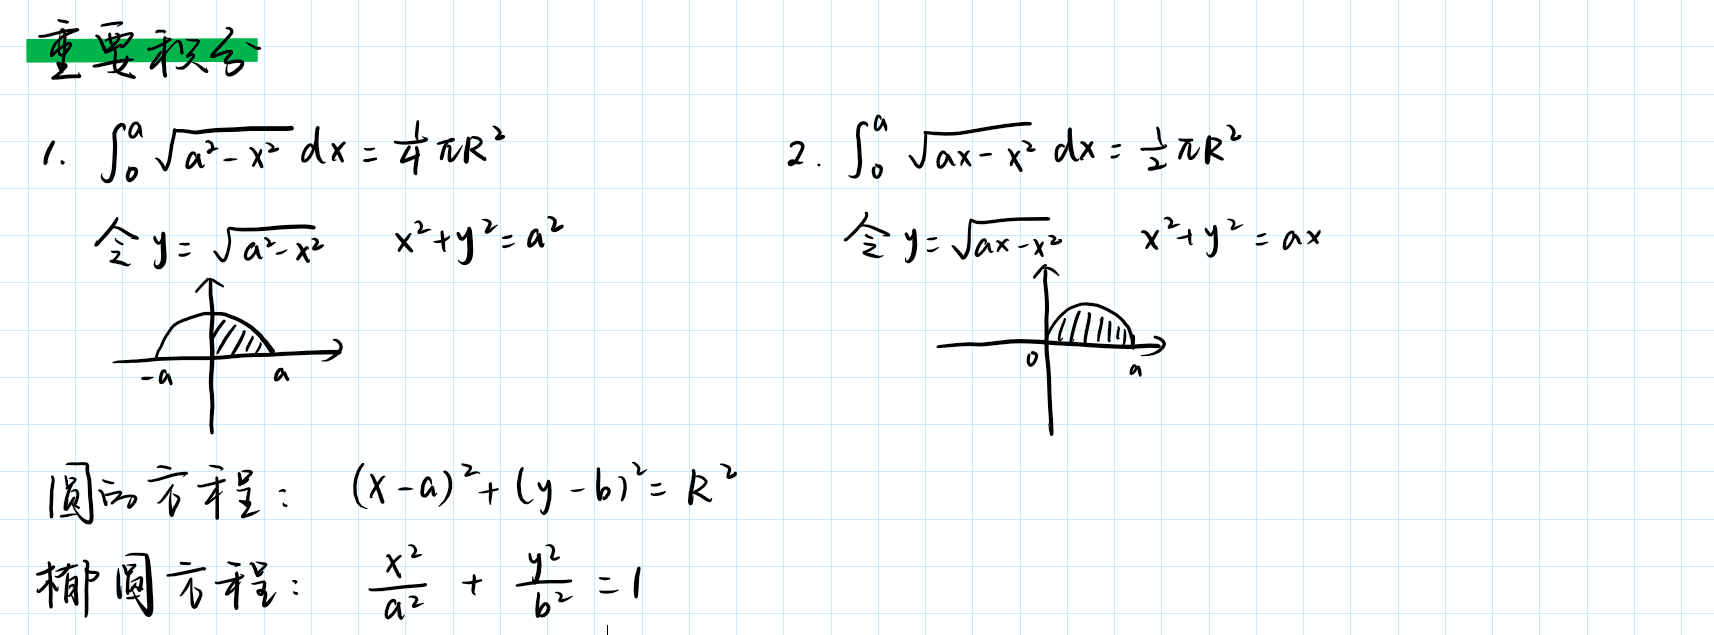 重要积分
1. ∫₀ᵃ √(a² - x²) dx = 1/4 πR²
令 y = √(a² - x²)   x² + y² = a²
-a   a
2. ∫₀ᵃ √(ax - x²) dx = 1/2 πR²
令 y = √(ax - x²)   x² + y² = ax
0   a
圆的方程: (x - a)² + (y - b)² = R²
椭圆方程: x²/a² + y²/b² = 1